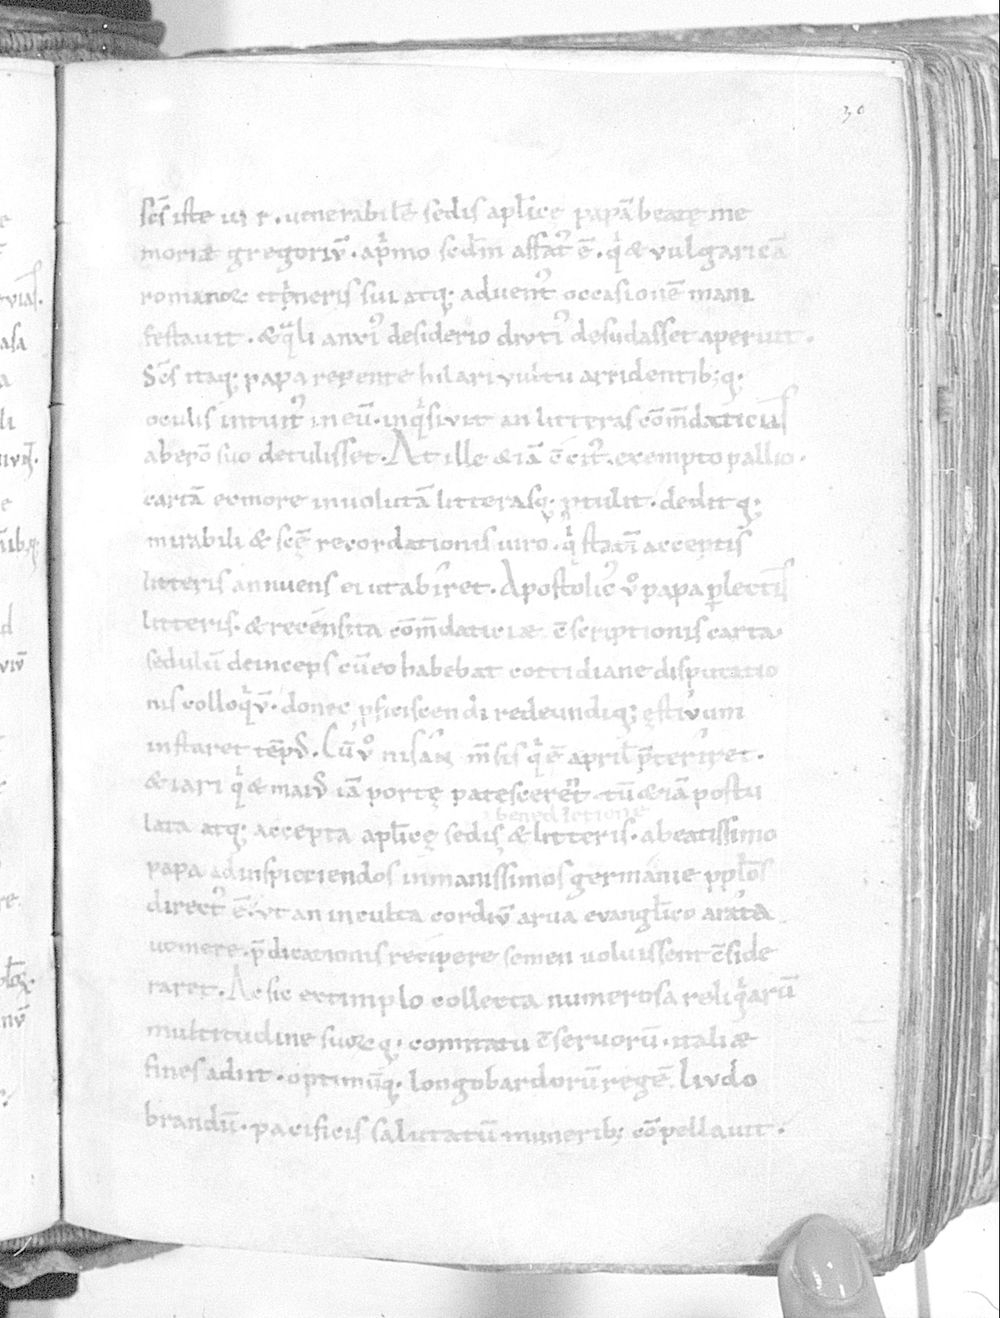 30
scs̄ iste uir. uenerabilē sedis apl̄ice papā beatę me
moriæ gregoriū. apͥmo sedē in affatꝰ ē. qͥ & vulgaricā
romanoꝝ itineris sui atq; aduentꝰ occasionē mani
festauit. & qͣli anxiꝰ desiderio diutiꝰ desudasset aperuit.
Scs̄ itaq; papa repente hilari vultu arridentib;q;
oculis intuitꝰ in eū. inqͥsiuit an litteras cōm̄daticias
ab ep̄o suo detulisset. At ille & iā c̄citꝰ. exempto pallio.
cartā ex more inuolutā litterasq; ꝓtulit. dedit q;
mirabili & scē̄ recordationis uiro. qͥ statī acceptis
litteris annuens ei ut abiret. Apostolicꝰ v̊ papa ꝑlectis
litteris. & recensita cōm̄daticiæ c̄scriptionis carta.
sedulū deinceps cū eo habebat cottidiane disputatio
nis colloqͥū. donec ꝓficiscendi redeundiq; ęstiuum
instaret tēpꝰ. Cū v̊ nisan m̄sis qͥ ē april̄ p̄teriret.
& iari qͥ & maiꝰ iā portę patescerēt. tū & iā postu
benedictione
lata atq; accepta apl̄icę sedis & litteris. a beatissimo
papa ad inspiciendos inmanissimos germanie ppl̄os
directꝰ ē. ut an inculta cordiū arua euangl̄ico aratā
uomere. p̄dicationis recipere semen uoluissent c̄side
raret. Ac sic extimplo collecta numerosa reliqͥarū
multitudine suoꝝ q; comitatu c̄seruorū. italiæ
fines adiit. optimūq; longobardorū regē liudo
brandū. pacificis salutatū munerib; cōpellauit.